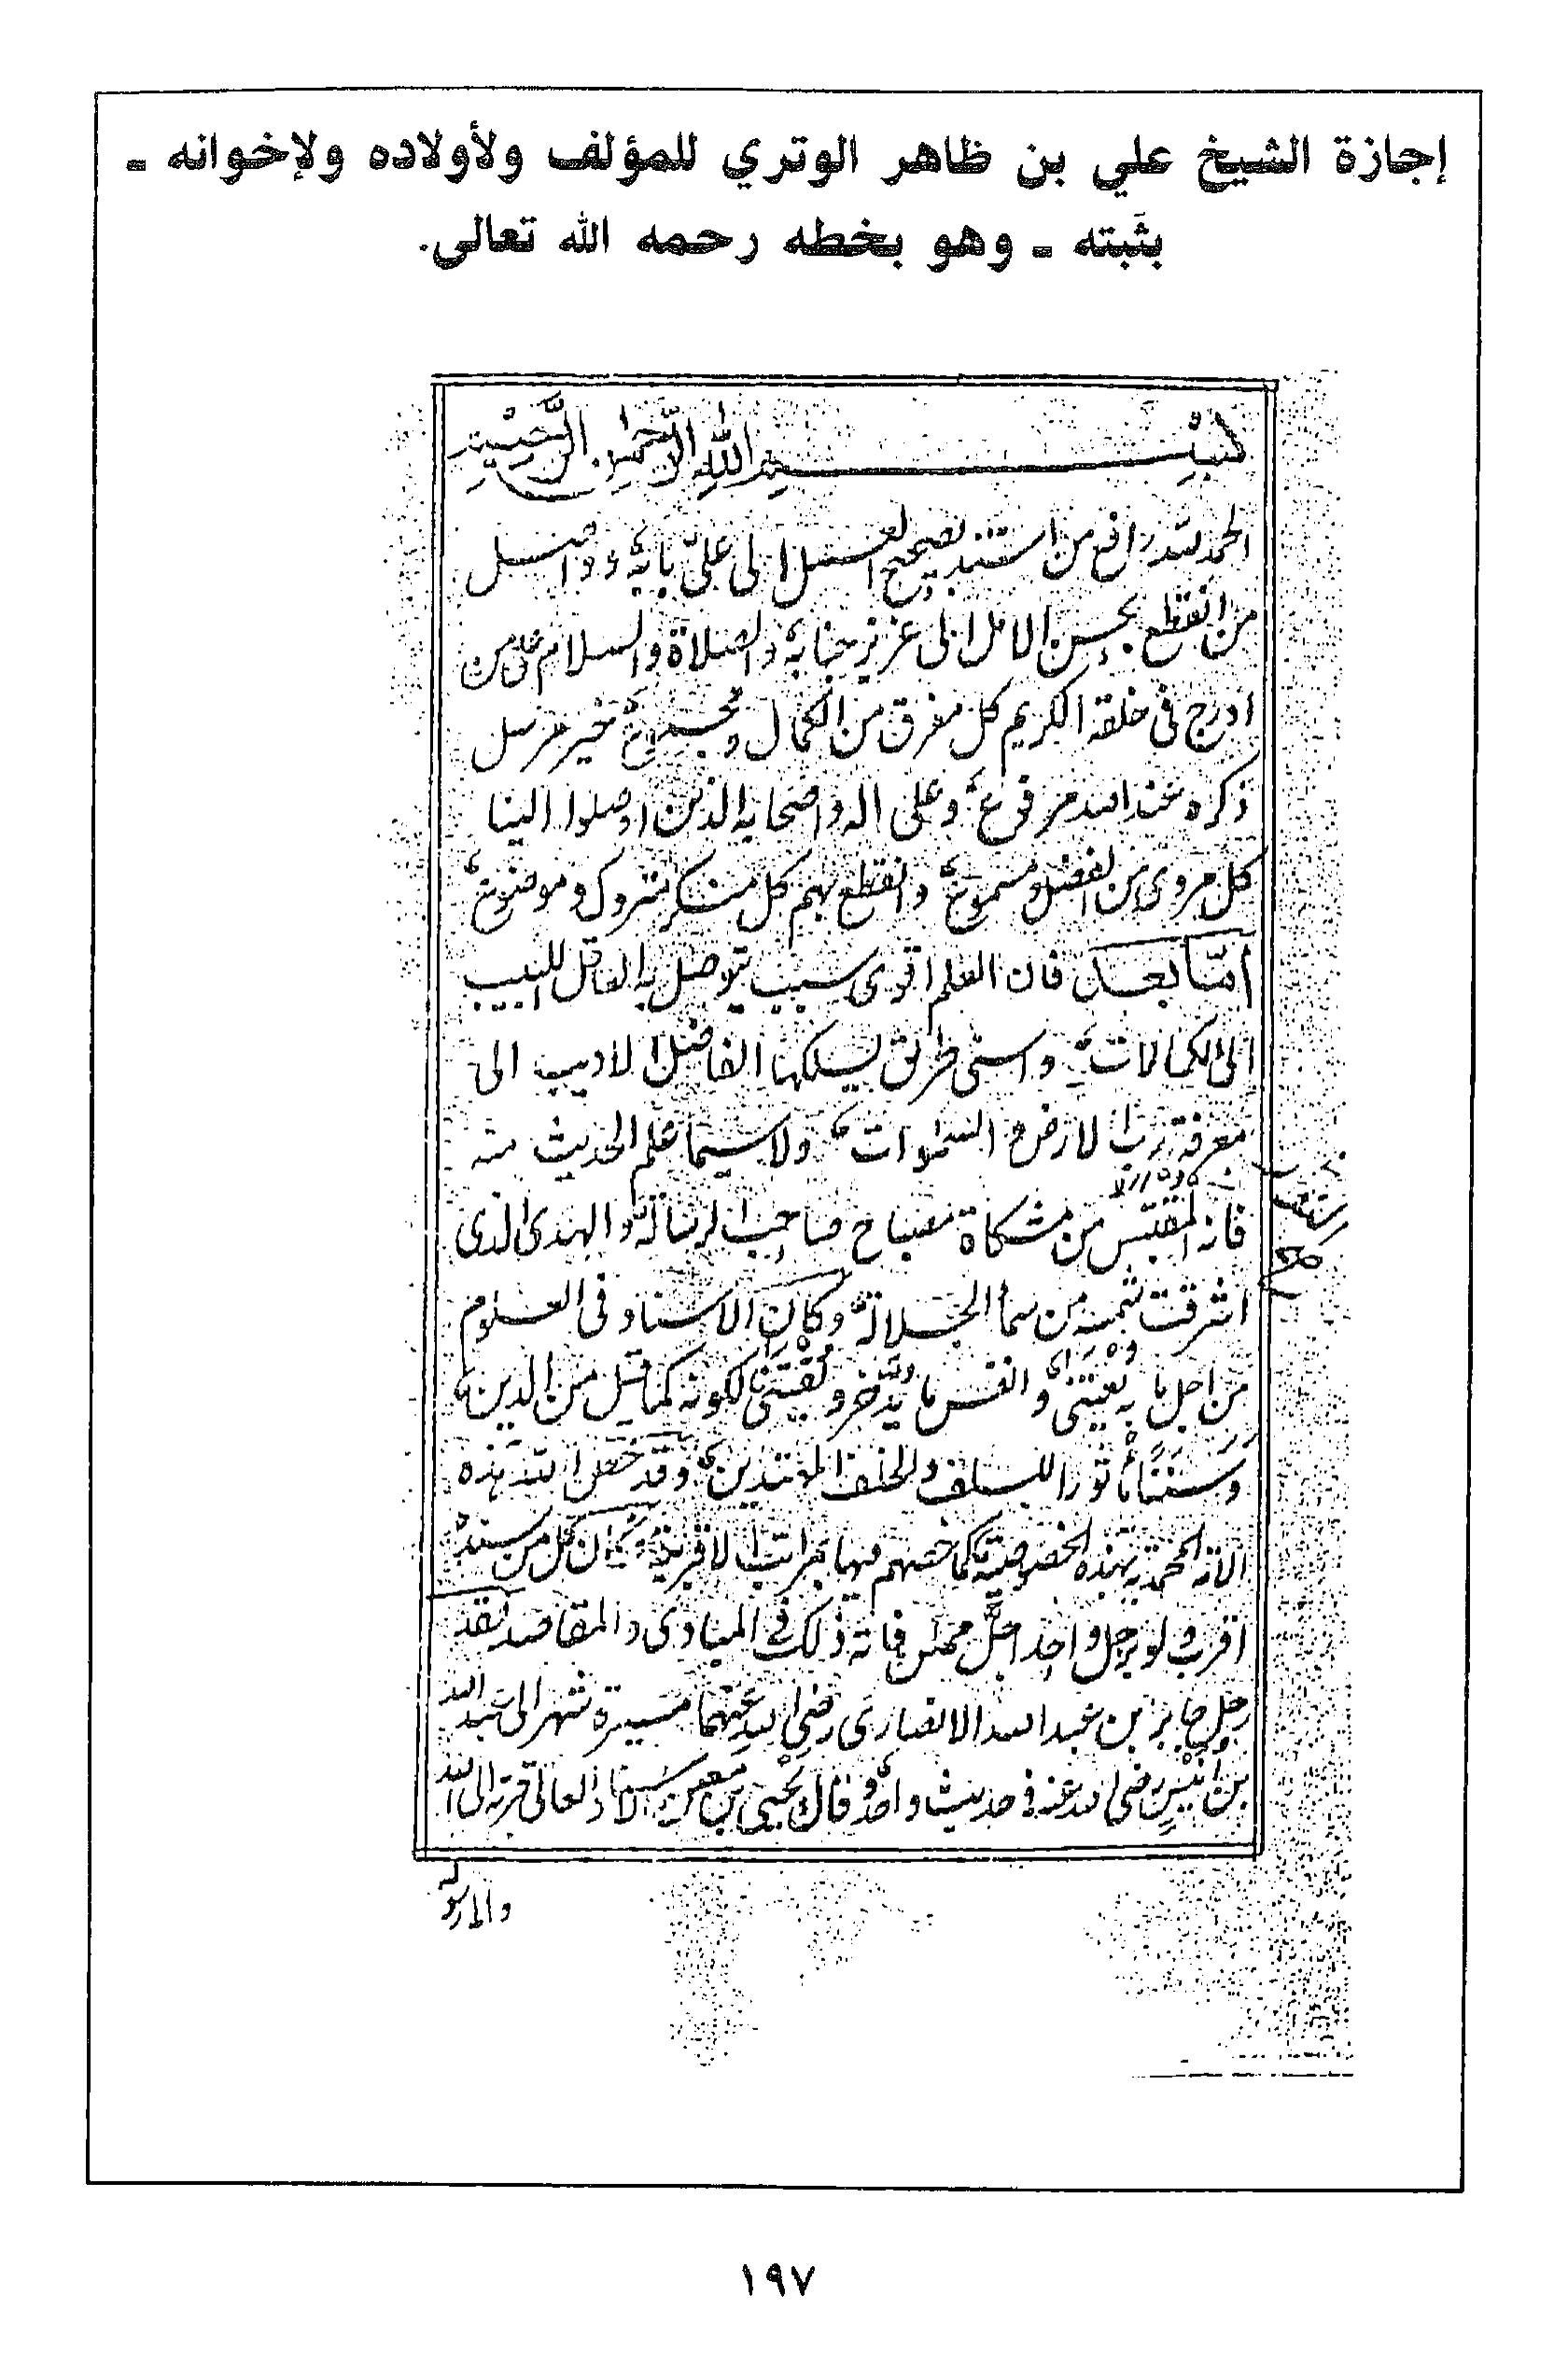 إجازة الشيخ علي بن ظاهر الوتري للمؤلف ولأولاده ولإخوانه ـ
بثَبته ـ وهو بخطه رحمه الله تعالى.
بسم الله الرحمن الرحيم
الحمد لله رافع من استند بصحيح العمل الى علىّ بابه، وواصل
من انقطع بحسن الامل الى عزيز جنابه، والصلاة والسلام على من
ادرج فى خلقه الكريم كل مفرق من الكمال ومجموع، خير مرسل
ذكره عند الله مرفوع، وعلى اله واصحابه الذين اوصلوا الينا
كل مروى من الفضل ومسموع، وانقطع بهم كل منكر متروك وموضوع،
أمّا بعد فان العلم اقوى سبب يتوصل به العاقل اللبيب
الى الكمالات، واسنى طريق يسلكها الفاضل الاديب الى
معرفة رب الارض والسموات، ولا سيما علم الحديث منه
فانه المقتبس من مشكاة مصباح صاحب الرسالة، والهدى الذى
اشرقت شمسه من سما الجلالة، وكان الاسناد فى العلوم
من اجل ما به يعتنى، وانفس ما يدّخر ويقتنى لكونه كما قيل من الدين،
وسننا مأثورا للسلف والخلف المهتدين، وقد خصّ الله هذه
الامة المحمدية بهذه الخصوصية كما خصهم فيها بمراتب الاقربية، فكان كل من سنده
اقرب ولو برجل واحد اجلّ ممن فاته ذلك فى المبادى والمقاصد فقد
رحل جابر بن عبد الله الانصارى رضى الله عنهما مسيرة شهر الى عبد الله
بن أنيس رضى الله عنه فى حديث واحد، وقال يحيى بن معين الاسناد العالى قربة الى الله
والى رسوله
١٩٧